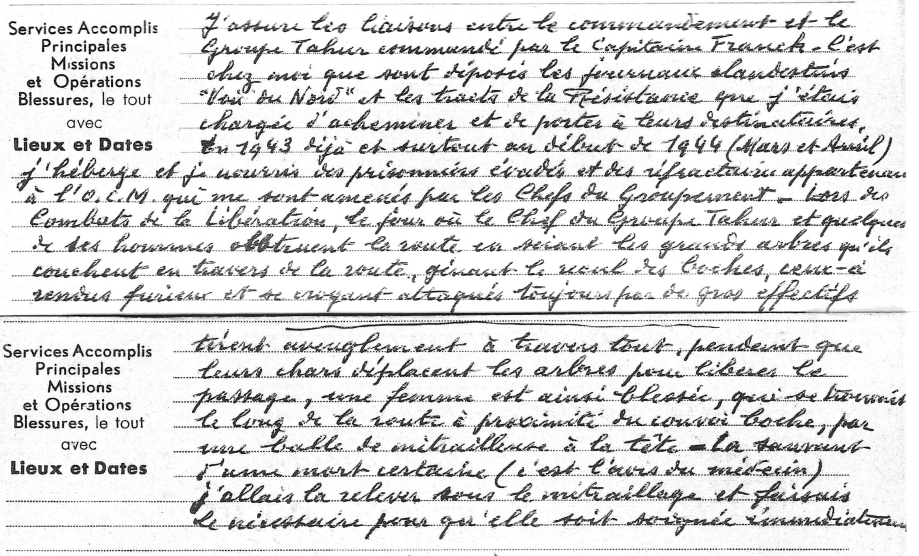 Services Accomplis
Principales
Missions
et Opérations
Blessures, le tout
avec
Lieux et Dates
J'assure les liaisons entre le commandement et le
Groupe Tahur commandé par le Capitaine Franck - C'est
chez moi que sont déposés les journaux clandestins
"Voix du Nord" et les tracts de la Résistance que j'étais
chargée d'acheminer et de porter à leurs destinataires.
En 1943 déjà et surtout au début de 1944 (Mars et Avril)
j'héberge et je nourris des prisonniers évadés et des réfractaires appartenan
à l'O.C.M. qui me sont amenés par les Chefs du Groupement - Lors des
Combats de la Libération, le jour où le Chef du Groupe Tahur et quelques
de ses hommes obstruent la route en sciant les grands arbres qu'ils
couchent en travers de la route, gênant le recul des boches, ceux-ci
rendus furieux et se croyant attaqués toujours par de gros effectifs
Services Accomplis
Principales
Missions
et Opérations
Blessures, le tout
avec
Lieux et Dates
tirent aveuglement à travers tout, pendant que
leurs chars déplacent les arbres pour libérer le
passage, une femme est ainsi blessée, qui se trouvait
le long de la route à proximité du convoi boche, par
une balle de mitrailleuse à la tête - La sauvant
d'une mort certaine (c'est l'avis du médecin)
j'allais la relever sous le mitraillage et faisais
le nécessaire pour qu'elle soit soignée immédiatemen